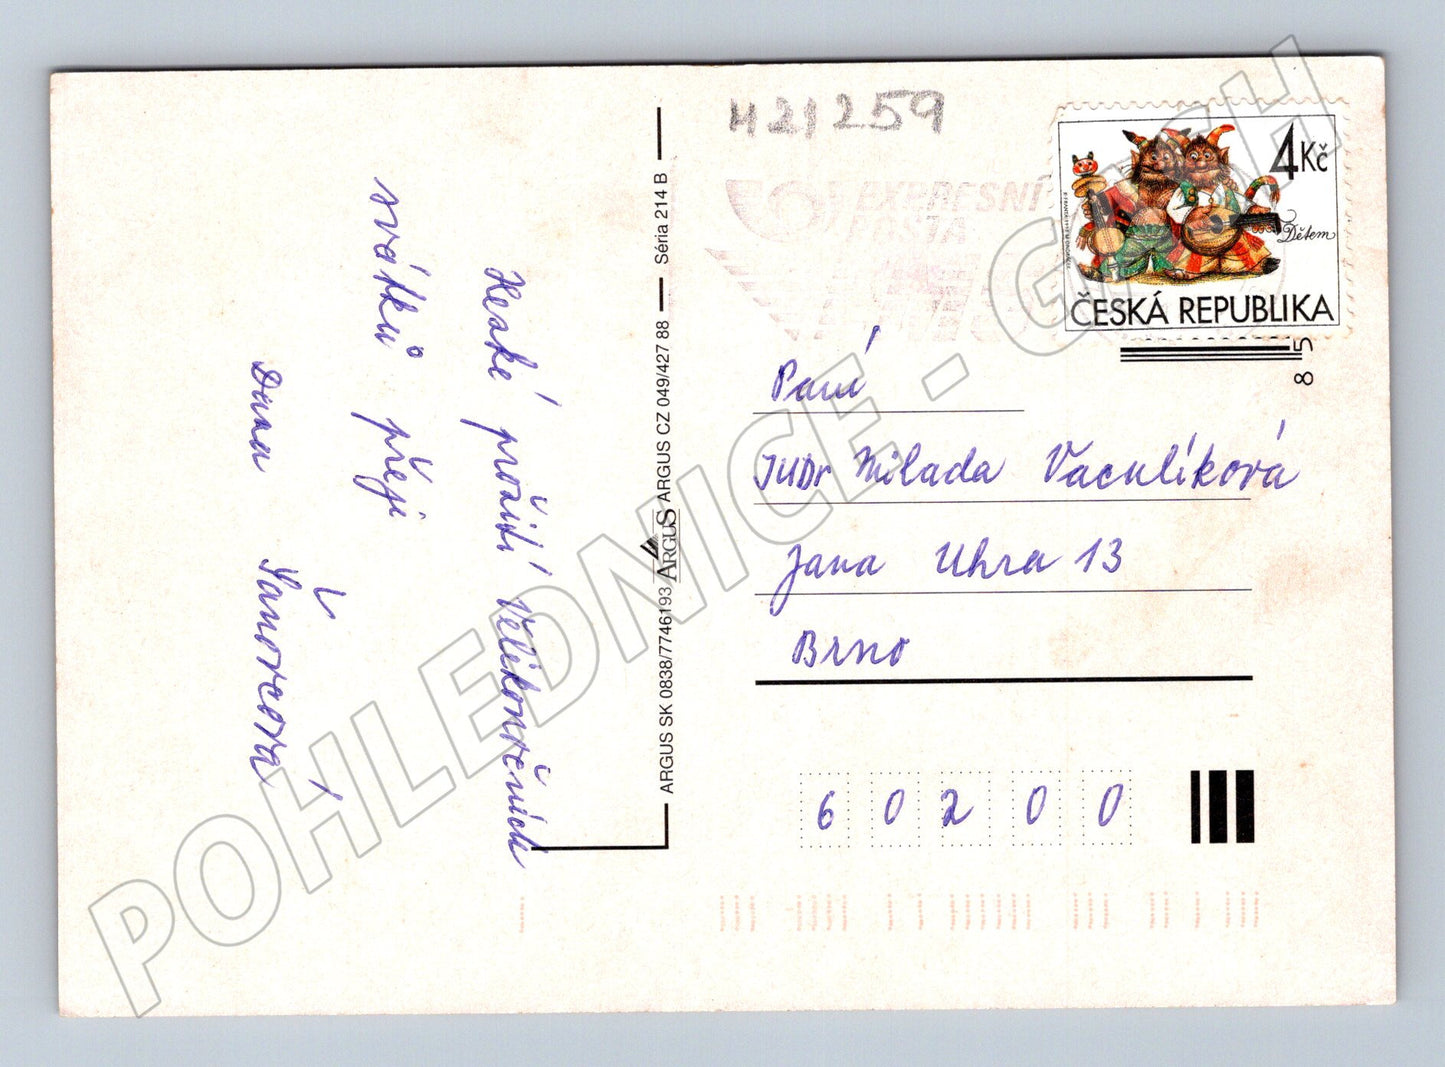 H21259
EXPRESNÍ
POŠTA
4Kč
Dětem
ČESKÁ REPUBLIKA
5
8
Hezké prožití Velikonočních
svátků přeji
Dana Šánovcová
ARGUS SK 0838/7746193 ARGUS ARGUS CZ 049/427 88 Séria 214 B
Paní
JUDr Milada Vaculíková
Jana Uhra 13
Brno
60200
POHLEDNICE - GMSH